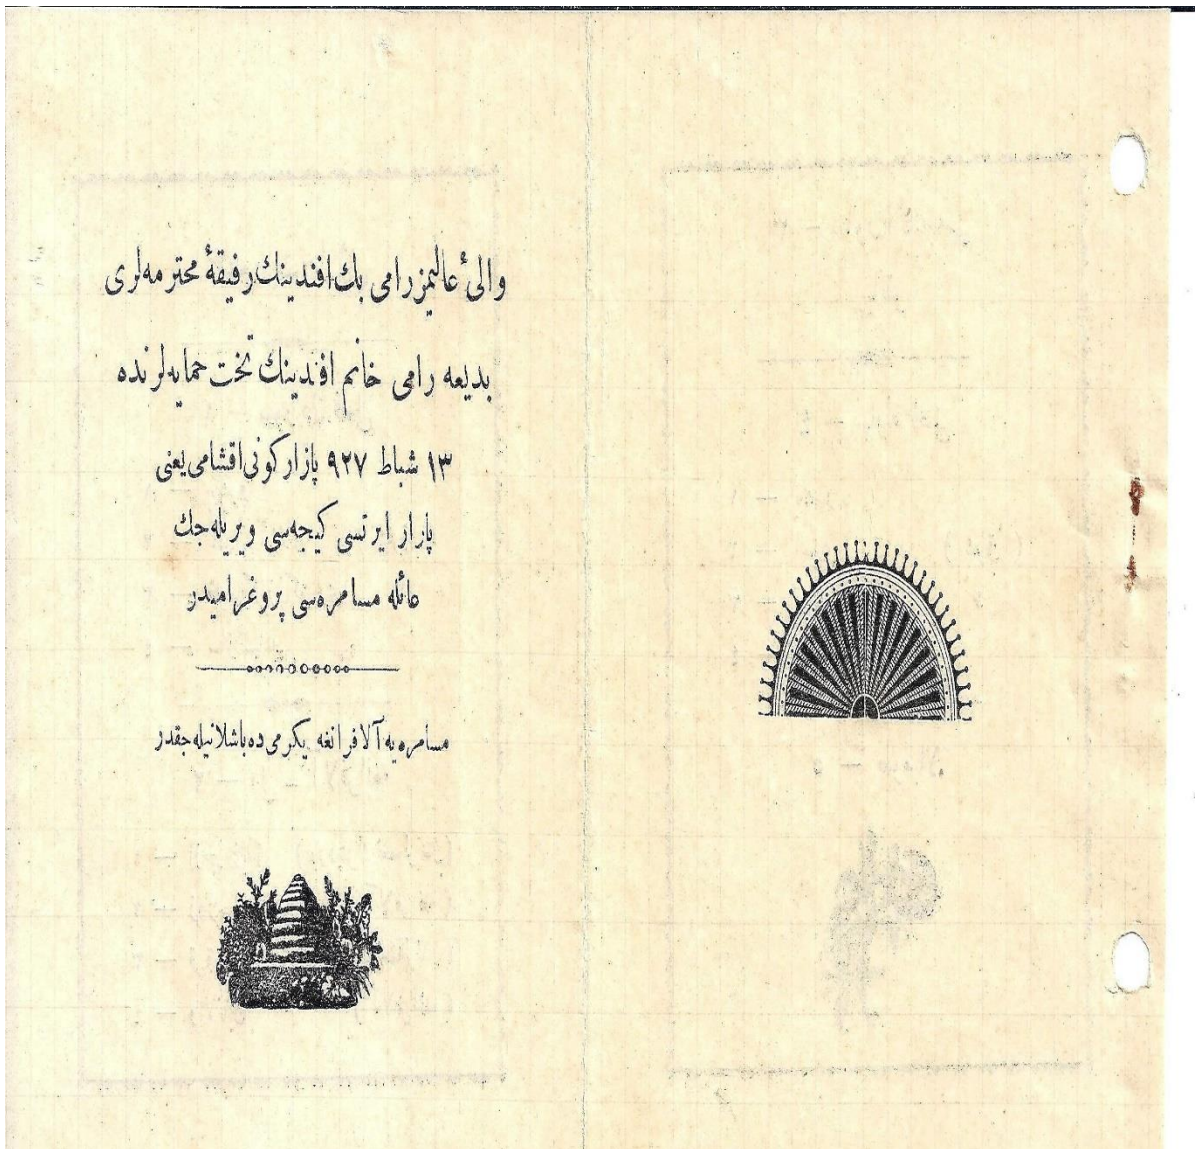 والیٔ عالیمز رامی بك افندینك رفیقهٔ محترمه‌لری
بدیعه رامی خانم افندینك تخت حمایه‌لرنده
١٣ شباط ٩٢٧ پازار کونی اقشامی یعنی
پازار ایرتسی کیجه‌سی ویریله‌جك
عائله مسامره‌سی پروغرامیدر
مسامره یه آلافرانغه یکرمی ده باشلانیله‌جقدر